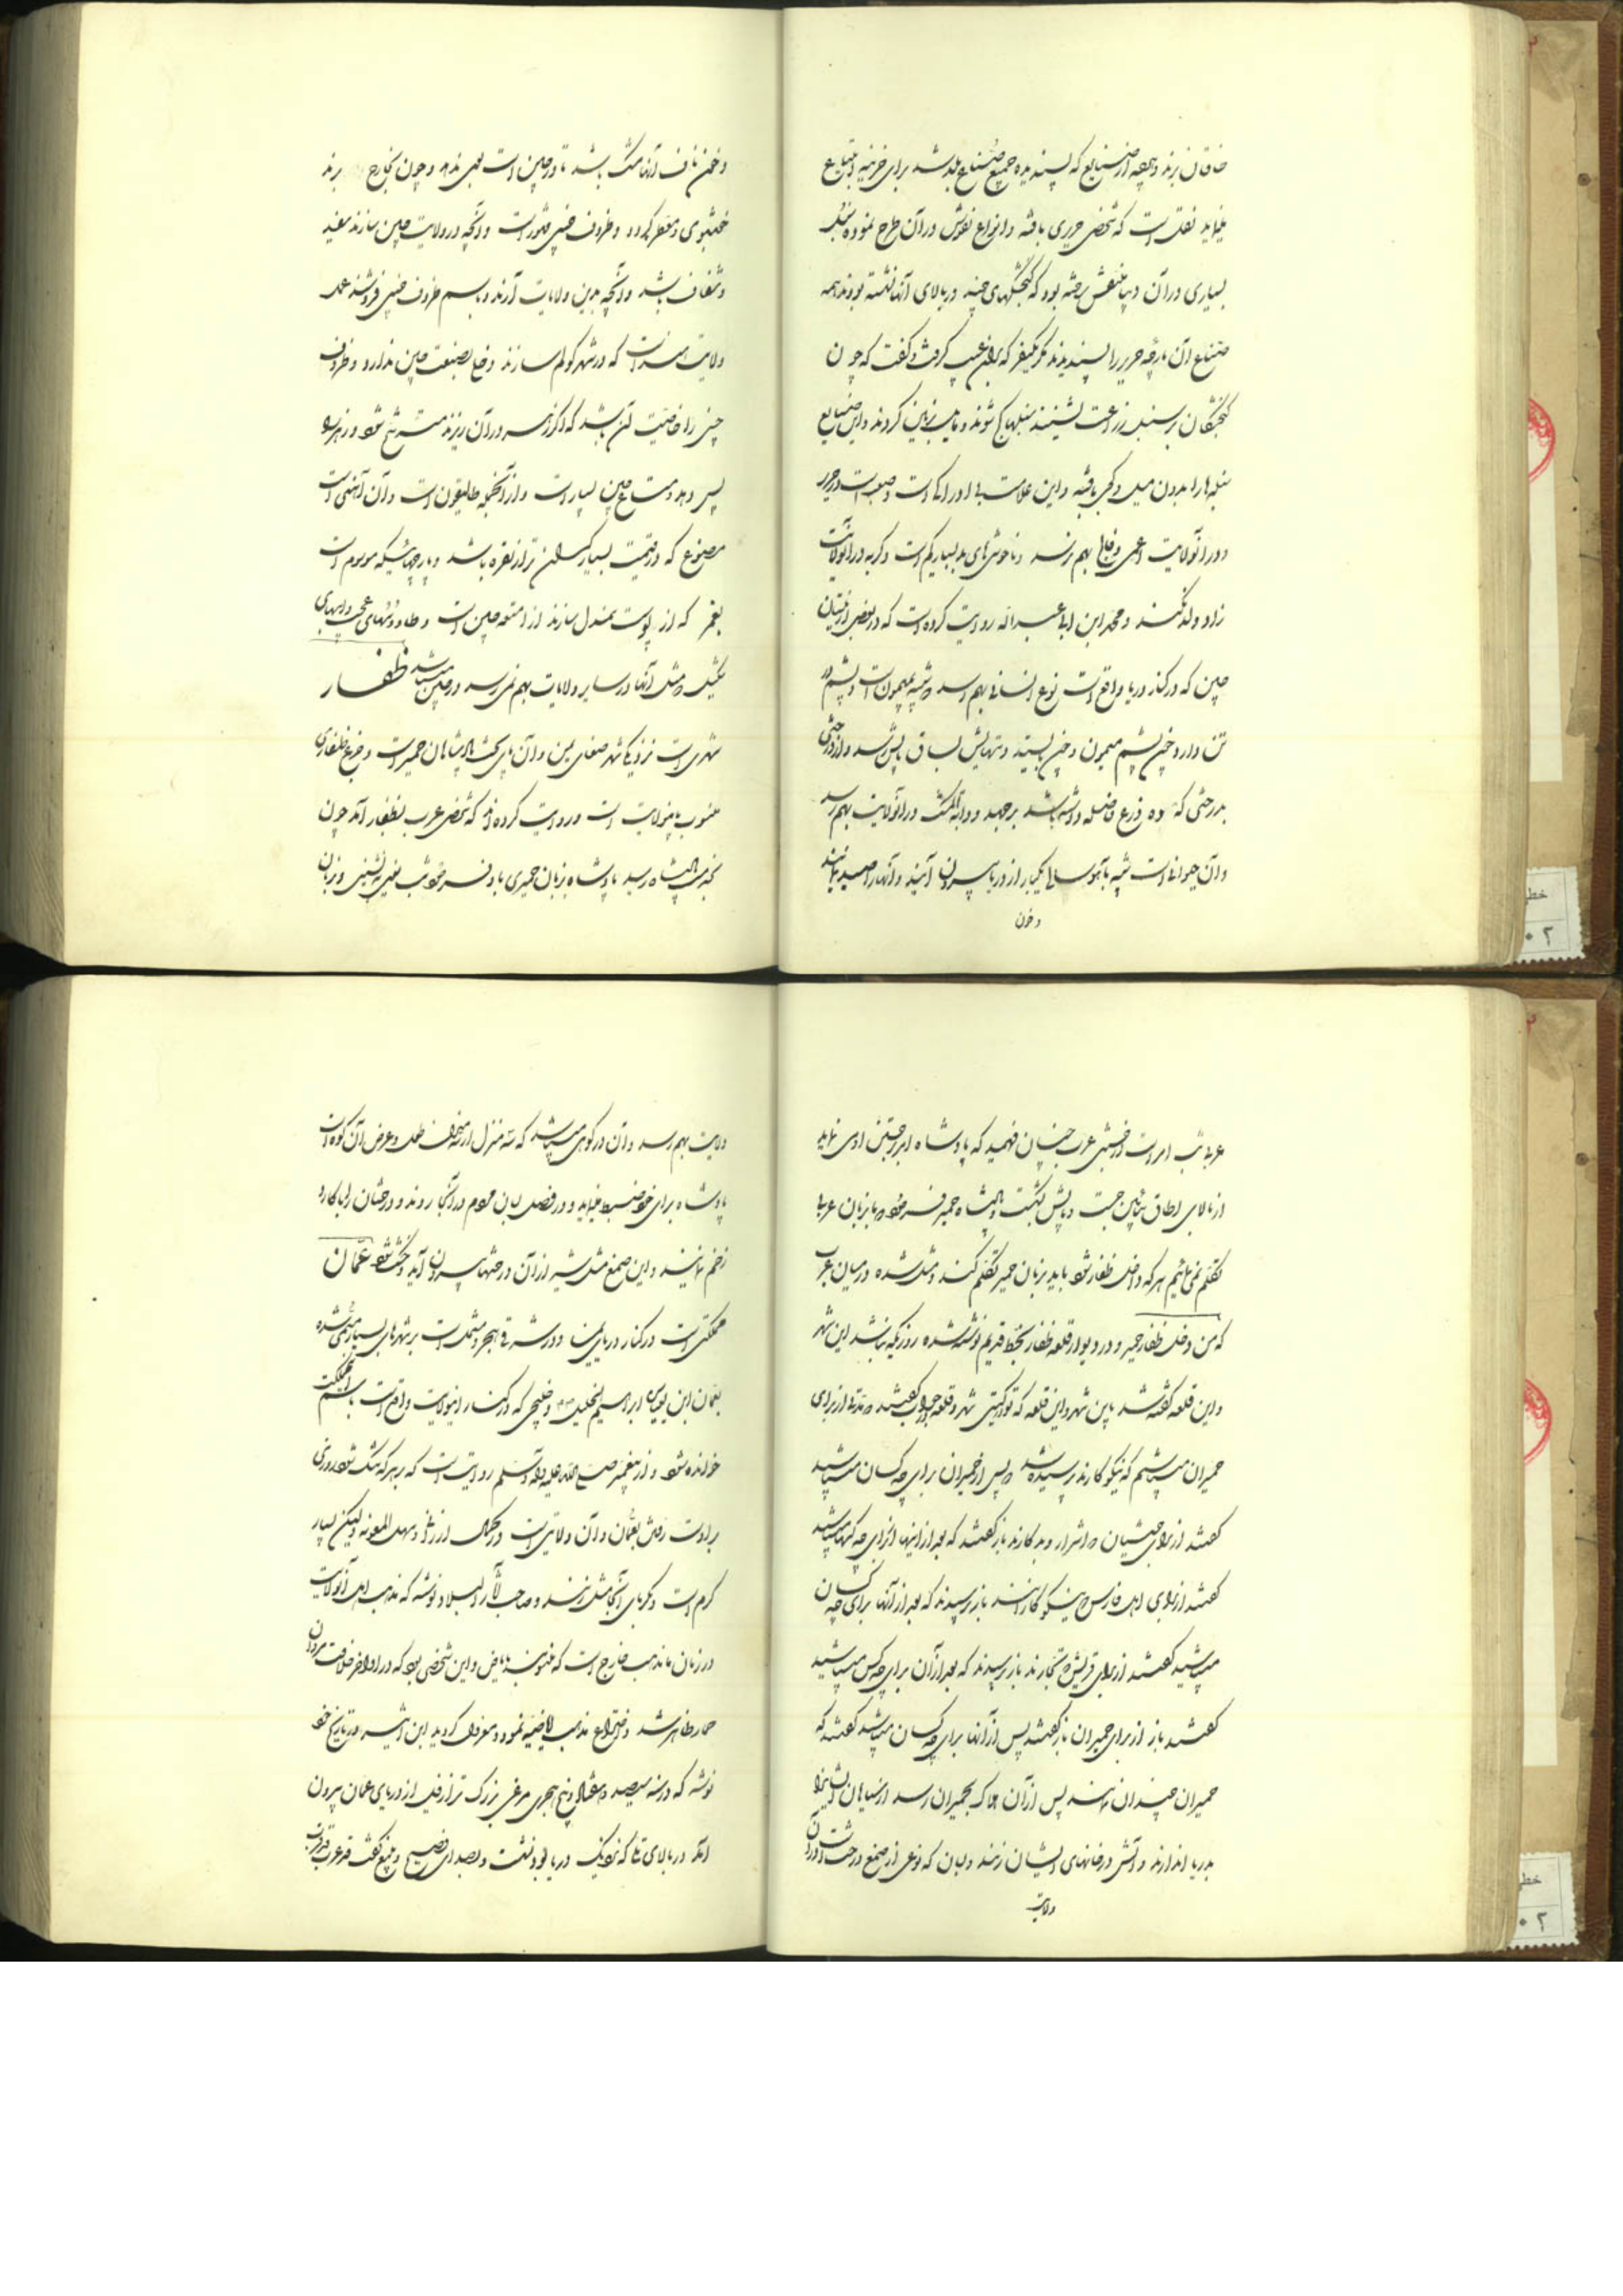 خاقان برند و هرچه از صنایع که پسندیده جمیع صناع باشد برای خزینه ابتیاع
نماید نقلست که شخصی حریری بافته و انواع نقوش در آن طرح نموده سنبله
بسیاری در آن دیبا منقش ساخته بود که گنجشکهای چند در بالای آنها نشسته بودند همه
صناع آن پارچه حریر را پسندیدند مگر یکنفر که بر آن عیب گرفت و گفت که چون
گنجشکان بر سنبله زراعت نشینند سنبلها کج شوند و مایل بزمین گردند و این صنایع
سنبلها را بدون میل و کجی بافته و این علامت بی ادراکی است
و در آنولایت اعمی و فلج بهم نرسد و ناخوشی‌های بد بسیار کم است و گربه در آنولایت
زاد و ولد نکند و محمد ابن ابی عبداله روایت کرده است که در بعضی از
چین که در کنار دریا واقع است نوع انسانی بهم رسد که شبیه بمیمونست و پشم در
تن دارد چون پشم میمون و چون بایستد دستهایش بساق پایش رسد و از درختی
بدرختی که ده ذرع فاصله داشته باشد برجهد و دابة المشک در آنولایت بهم رسد
و آن حیوانی است شبیه بآهو سالی یکبار از دریا بیرون آیند و آنها را صید نمایند
و خون
و خون ناف آنها مشک باشد تا در چین است بوی ندهد و چون بخارج برند
خشبوی و معطر گردد و ظروف چینی مشهور است و آنچه در ولایت چین سازند سفید
و شفاف باشد و آنچه بدین ولایات آرند و باسم ظروف چینی فروشند عمل
ولایت است که در شهر کولم سازند و دخلی بصنعت چین ندارد و ظروف
چینی را خاصیت آن باشد که اگر زهر در آن ریزند مترشح شود و زهر را
پس دهد و متاع چین بسیار است و از آنجمله طالیقون است و آن آهنی است
مصنوع که در قیمت بسیار گران‌تر از نقره باشد و پارچهائیکه موسوم است
که از پوست سمندل سازند از امتعه چین است و طاووسهای عجیب و اسبهای
شکیل که مثل آنها در سایر ولایات بهم نمی رسد در چین میباشد ظفار
شهری است نزدیک شهر صنعای یمن و آن پای تخت پادشاهان حمیر است و جزع ظفاری
منسوب باینولایت است و روایت کرده‌اند که شخص عرب بظفار آمد چون
بخدمت پادشاه رسید پادشاه بزبان حمیری باو فرمود ثب یعنی بنشین و بزبان
عربی ثب امر است از جستن عرب چنان فهمید که پادشاه امر بجستن او می نماید
از بالای اطاق بپائین جست و پایش شکست پادشاه حمیر فرمود ما بزبان عربی
تکلم نمی نمائیم هر که داخل ظفار شود باید بزبان حمیر تکلم کند و مثل شده در میان عرب
که من دخل ظفار حمیر و در دیوار قلعه ظفار بخط قدیم نوشته شده روزیکه بنا شد این شهر
و این قلعه گفته شد باین شهر و این قلعه که تو از کیستی شهر و قلعه جواب گفتند ما از برای
حمیران میباشیم که نیکو کارند پرسیده شد که پس از حمیران برای چه کسان میباشید
گفتند از برای حبشیان که اشرار و بدکارند باز گفتند که بعد از اینها از برای چه کسها میباشید
گفتند از برای اهل فارس که نیکو کارانند باز پرسیدند که بعد از آنها برای چه کسان
میباشید گفتند از برای قریش که تجارند باز پرسیدند که بعد از آن برای چه کس میباشید
گفتند باز از برای حمیران باز گفتند پس از آنها برای چه کسان میباشید گفتند که
حمیران چندان نمانند پس از آن هلاک بحمیران رسد از سیاهان که ایشانرا
بدریا اندازند و آتش در خانهای ایشان زنند و لبان که نوعی از صمغ درخت است در آن
ولایت
ولایت بهم رسد و آن در کوهی میباشد که سه منزل از سه طرف طول و عرض آن کوه است
پادشاه برای خود ضبط نماید و در فصل لبان مردم در آنجا روند و درختان را با کارد
زخم نمایند و این صمغ مثل شیر از آن درختها بیرون آید و خشک شود عمان
مملکتی است در کنار دریای یمن و در شرقی هجر و مشتمل است بر شهرهای بسیار مسمی شده
بعمان ابن ابراهیم الخلیل و خلیجی که در کنار اینولایت واقع است باسم این مملکت
خوانده شود و از پیغمبر صلی الله علیه و آله و سلم روایت است که بر هر که تنگ شود روزی
بر اوست رفتن بعمان و آن ولایتی است در کمال ارزانی و سهل المعونه ولیکن بسیار
گرم است و بگرمای آنجا مثل زنند و صاحب آثار البلاد نوشته که مذهب اهل آنولایت
در زمان ما مذهب خارج است که منسوبند باباض و این شخصی بود که در اواخر خلافت مروان
حمار ظاهر شد و اختراع مذهب اباضیه نمود و معزول گردید ابن اثیر در تاریخ خود
نوشته که در سنه سیصد و هفتاد و پنج هجری مرغی بزرگ تر از فیل از دریای عمان بیرون
آمد در بالای تلی که نزدیک دریا بود نشست و بصدای فصیح و بلیغ گفت قد عرب قد قرب
خطی